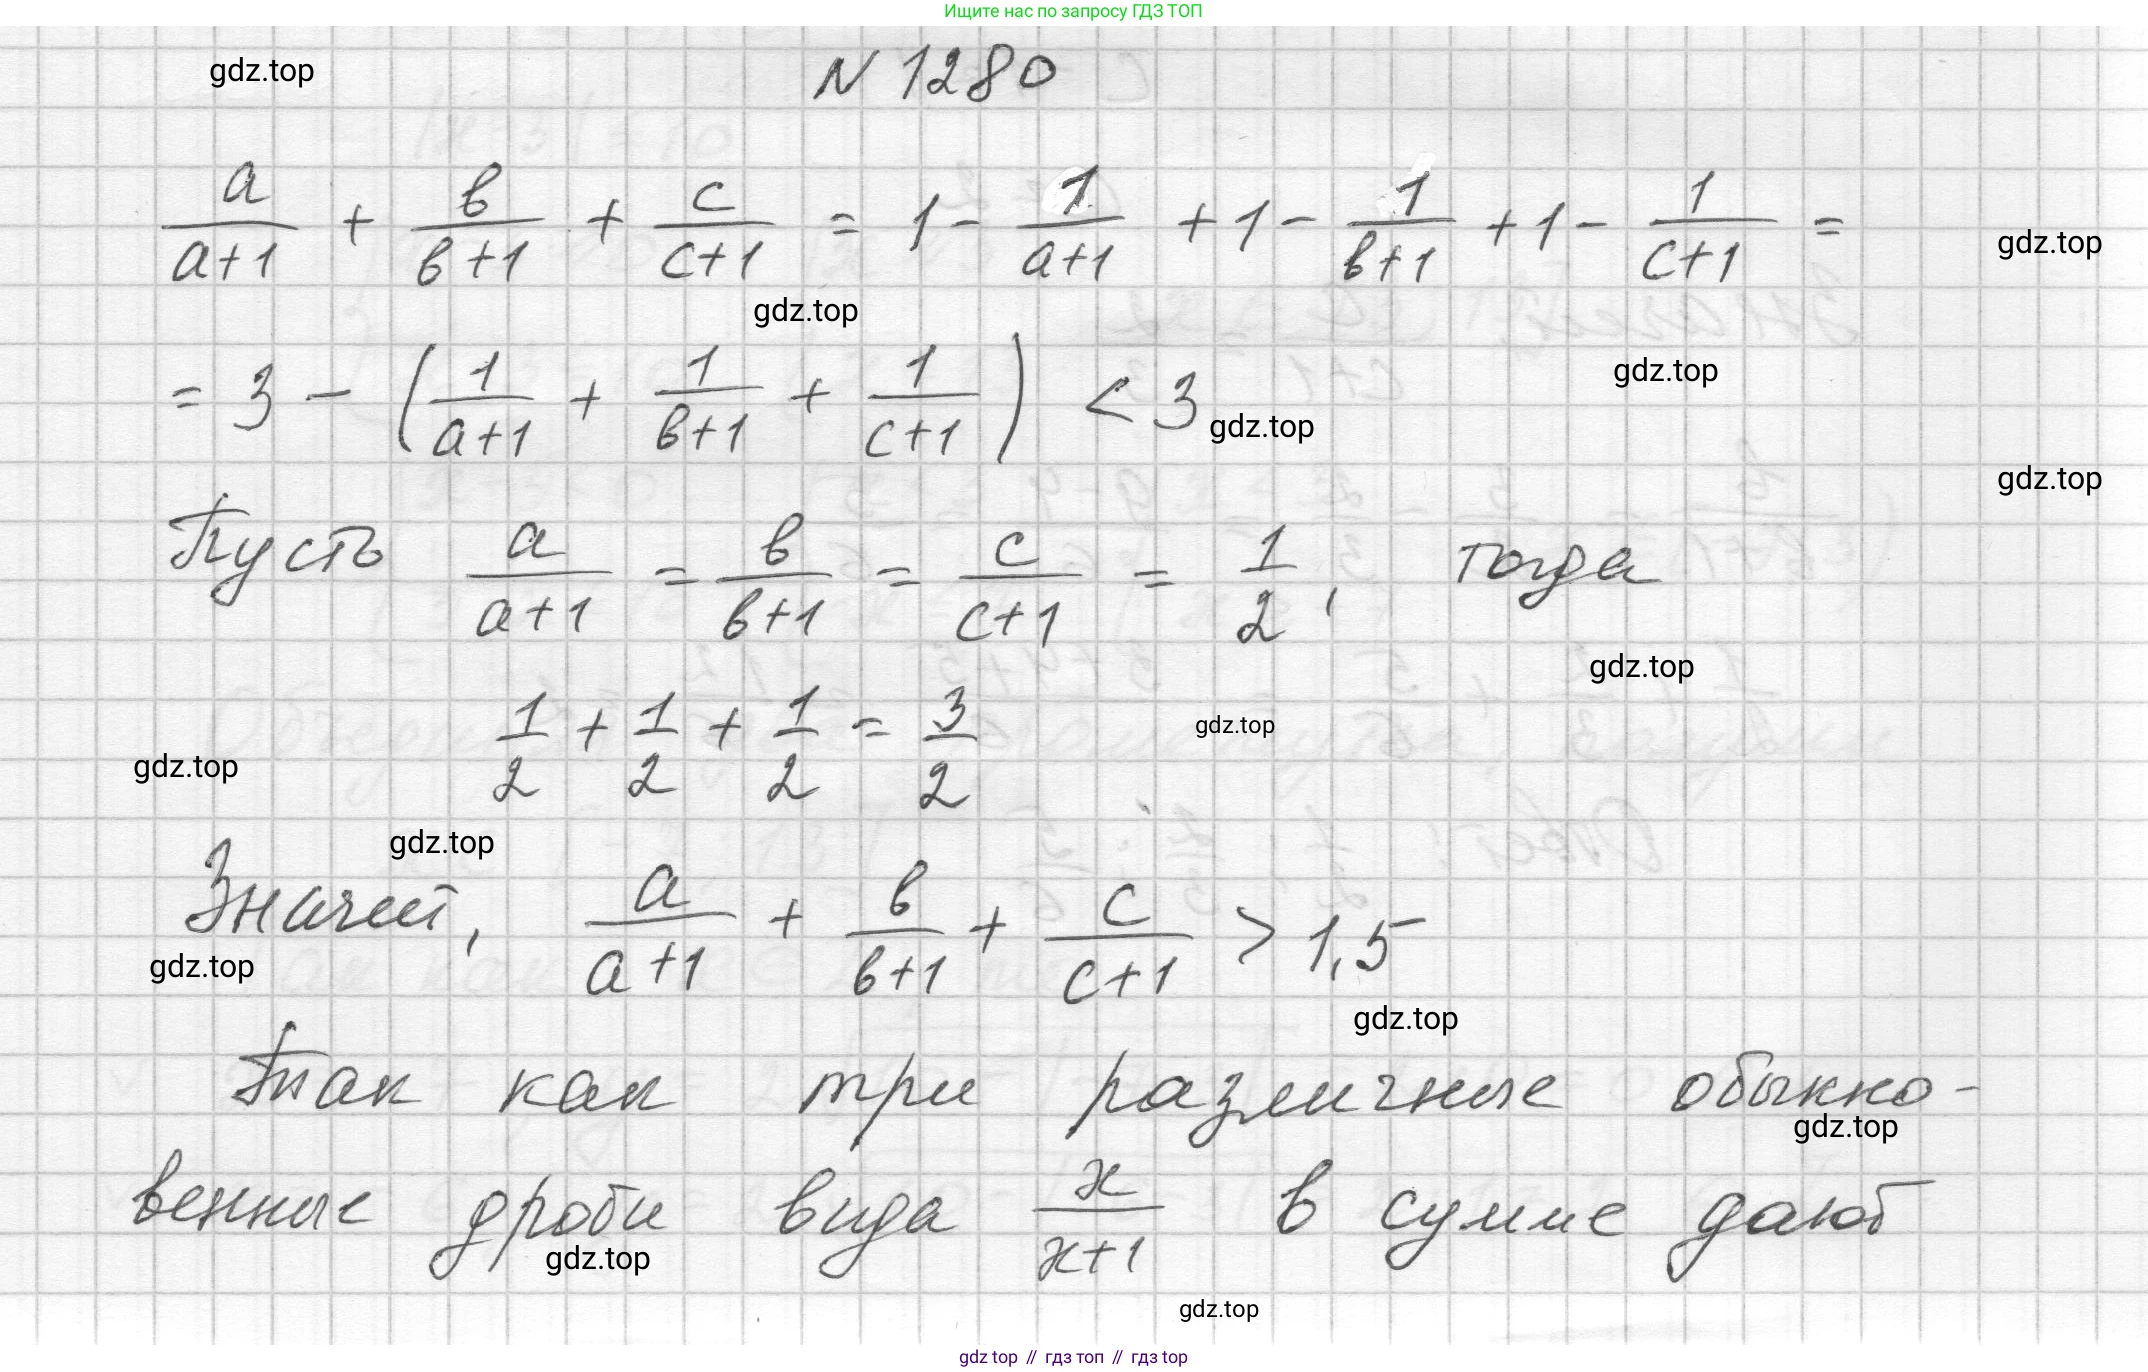 Ищите нас по запросу ГДЗ ТОП
gdz.top
N 1280
a/(a+1) + в/(в+1) + c/(c+1) = 1 - 1/(a+1) + 1 - 1/(в+1) + 1 - 1/(c+1) =
gdz.top
gdz.top
= 3 - (1/(a+1) + 1/(в+1) + 1/(c+1)) < 3
gdz.top
gdz.top
gdz.top
Пусть a/(a+1) = в/(в+1) = c/(c+1) = 1/2, тогда
gdz.top
1/2 + 1/2 + 1/2 = 3/2
gdz.top
gdz.top
gdz.top
Значит, a/(a+1) + в/(в+1) + c/(c+1) > 1,5
gdz.top
gdz.top
Так как три различные обыкно-
gdz.top
венные дроби вида x/(x+1) в сумме дают
gdz.top
gdz.top
gdz top // гдз топ // гдз top